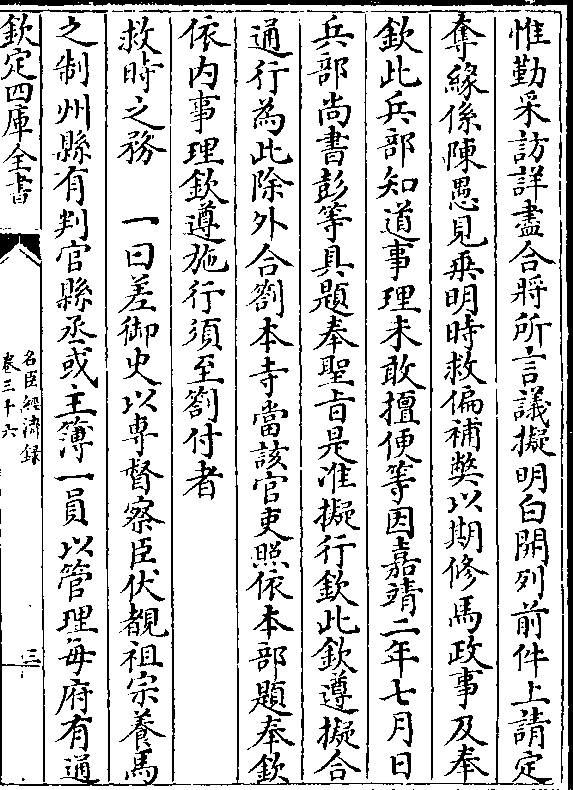 惟勤采訪詳盡合將所言議擬明白開列前件上請定
奪緣係陳愚見乗明時救偏補弊以期修馬政事及奉
欽此兵部知道事理未敢擅便等因嘉靖二年七月日
兵部尚書彭等具題奉聖旨是准擬行欽此欽遵擬合
通行為此除外合劄本寺當該官吏照依本部題奉欽
依内事理欽遵施行須至劄付者
救時之務　一曰差御史以専督察臣伏覩祖宗養馬
之制州縣有判官縣丞或主簿一員以管理毎府有通
欽定四庫全書
名臣經濟録
卷三十六
三